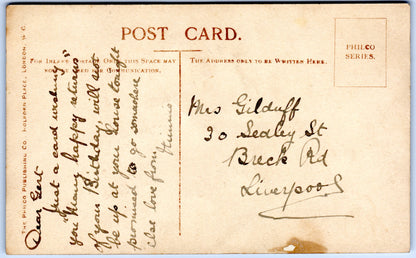 POST CARD.
FOR INLAND POSTAGE ONLY THIS SPACE MAY
NOW BE USED FOR COMMUNICATION.
THE ADDRESS ONLY TO BE WRITTEN HERE.
PHILCO
SERIES.
THE PHILCO PUBLISHING CO. HOLBORN PLACE, LONDON, W.C.
Dear Gert
Just a card wishing
you "Many happy returns"
of your Birthday will not
be up at your house tonight
promised to go somewhere
else love from
Mrs Gilduff
30 Sedley St
Breck Rd
Liverpool